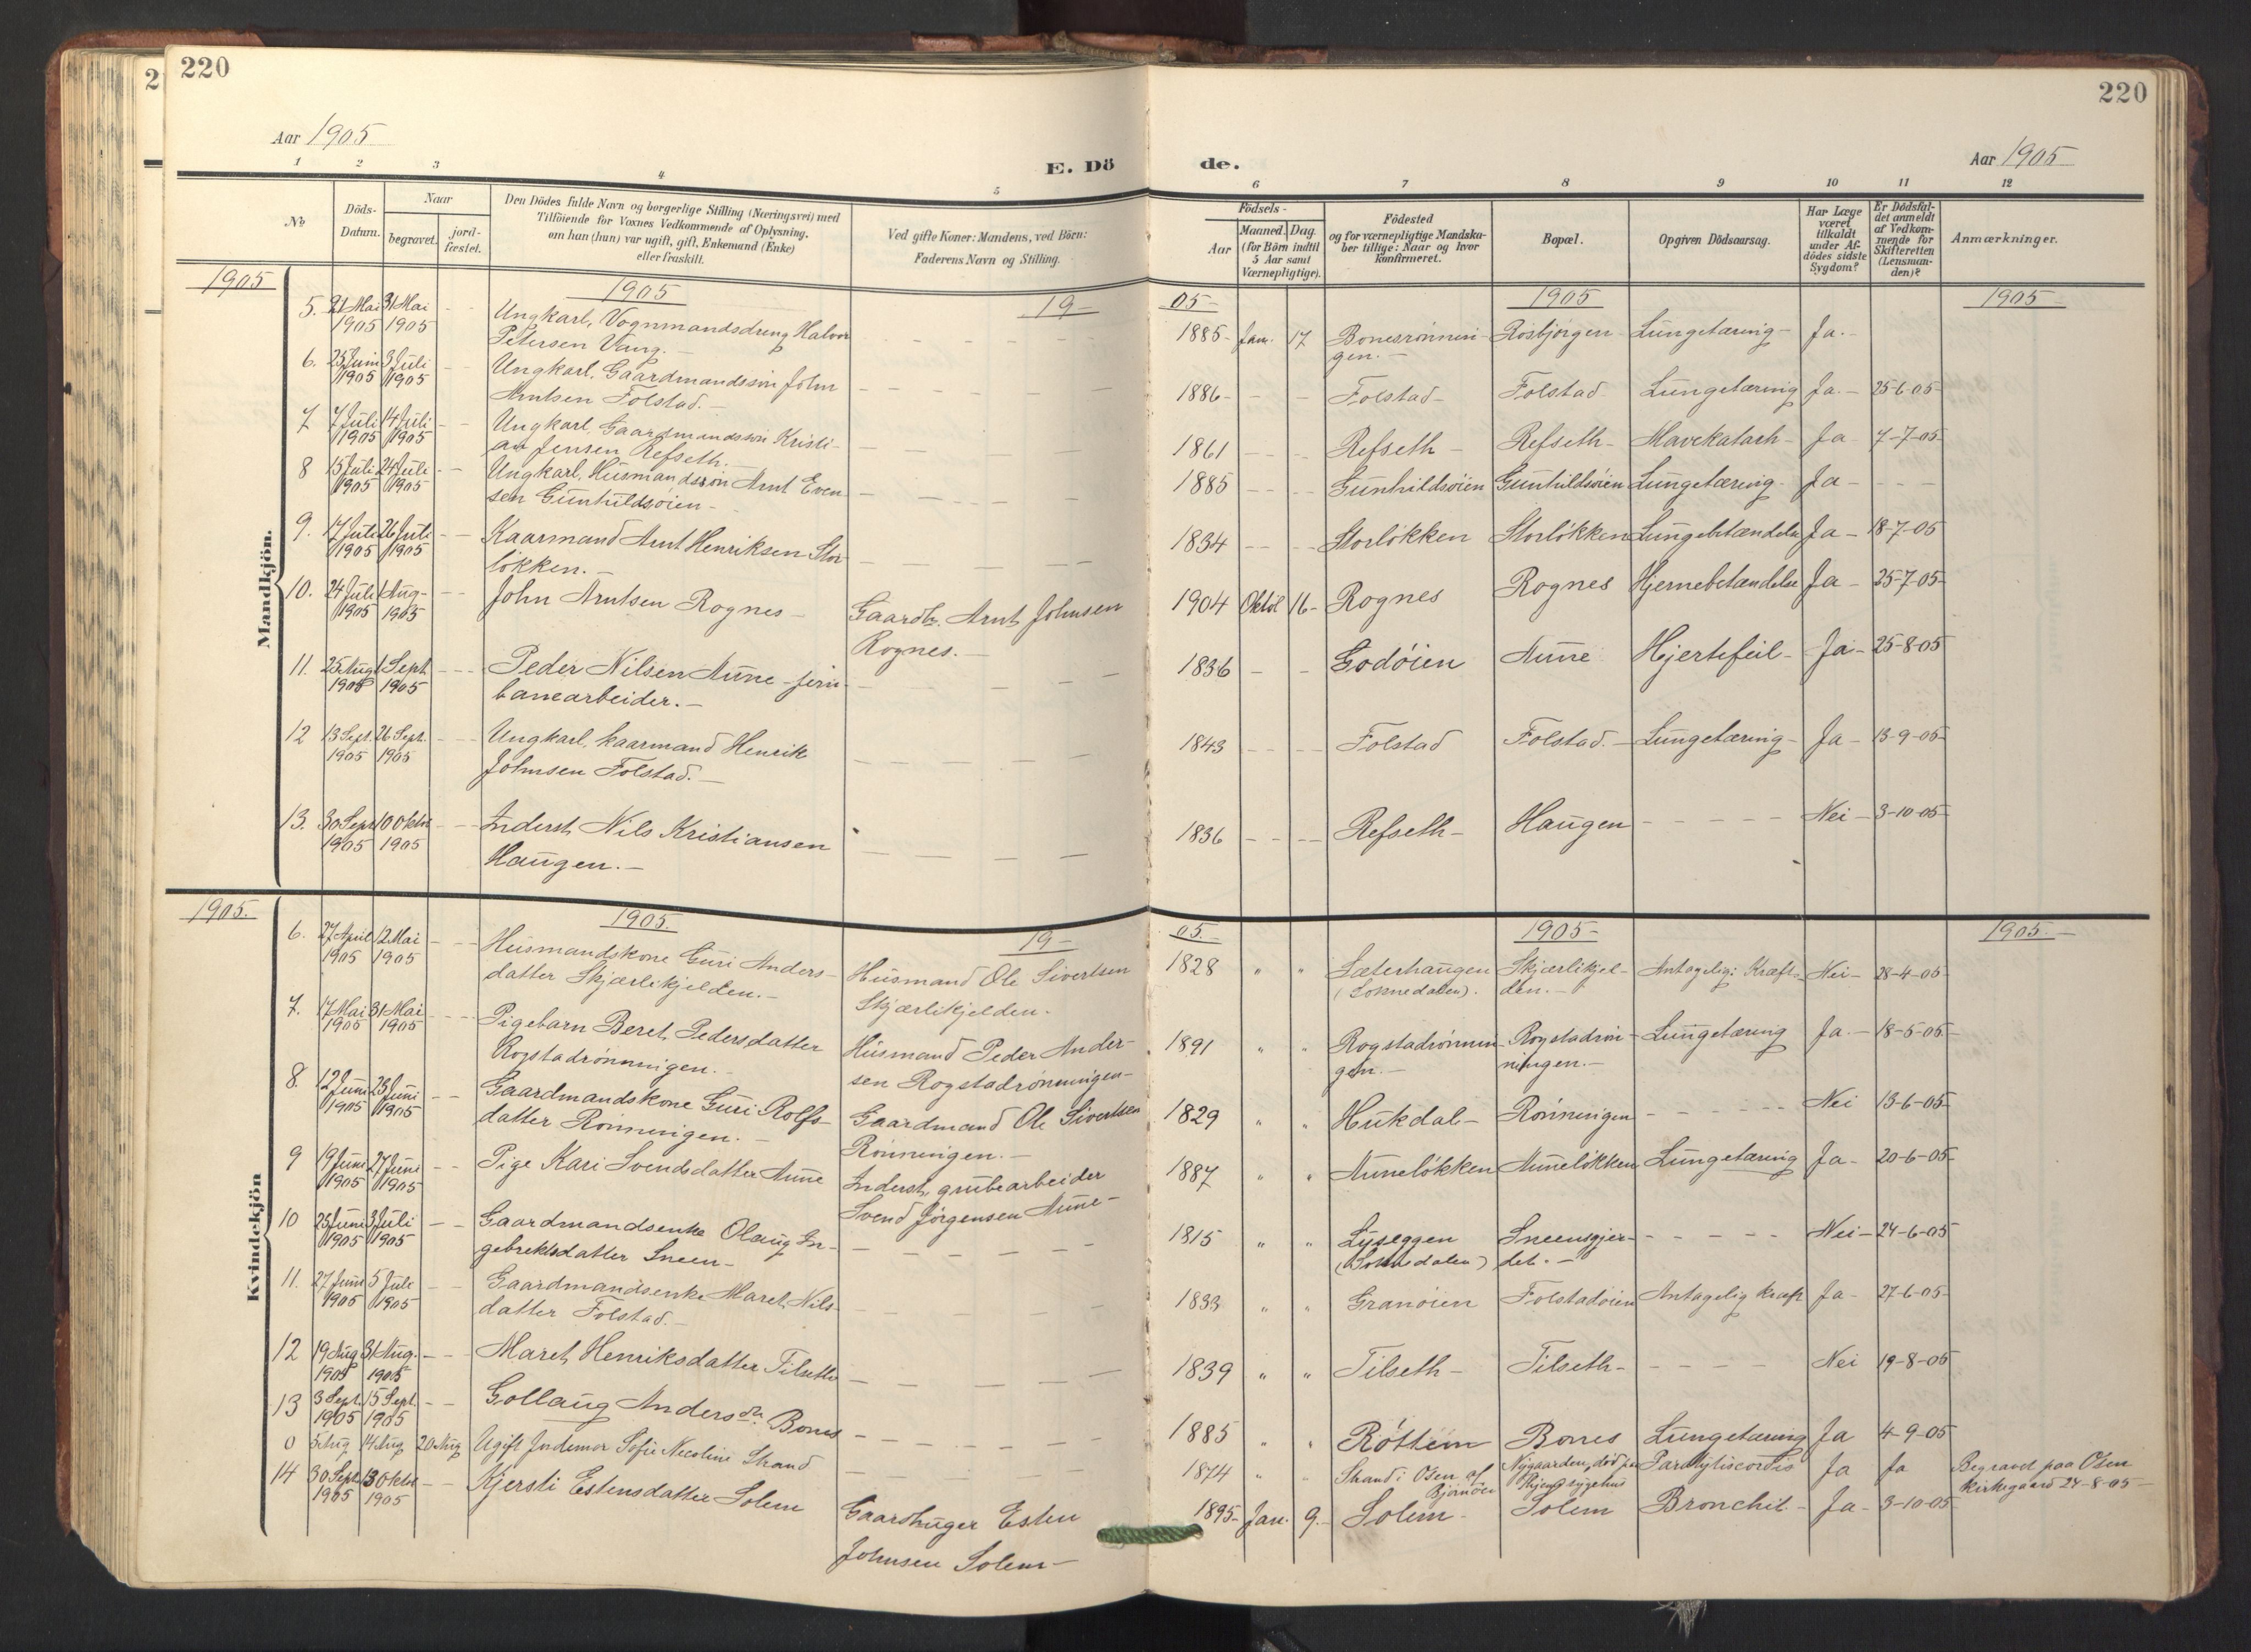 220
220
Aar 1905
E. Dö
de.
Aar 1905
1 2 3 4 5 6 7 8 9 10 11 12
No
Döds-
Datum.
Naar
begravet.
jord-
fæstet.
Den Dödes fulde Navn og borgerlige Stilling (Næringsvei) med
Tilföiende for Voxnes Vedkommende af Oplysning,
om han (hun) var ugift, gift, Enkemand (Enke)
eller fraskilt.
Ved gifte Koner: Mandens, ved Börn:
Faderens Navn og Stilling.
Födsels-
Aar
Maaned. Dag.
(for Börn indtil
5 Aar samt
Værnepligtige).
Födested
og for værnepligtige Mandska-
ber tillige: Naar og hvor
konfirmeret.
Bopæl.
Opgiven Dödsaarsag.
Har Læge
været
tilkaldt
under Af-
dödes sidste
Sygdom?
Er Dödsfal-
det anmeldt
af Vedkom-
mende for
Skifteretten
(Lensman-
den)?
Anmærkninger.
Mandkjön.
1905 1905 19- 05- 1905 1905
5. 21 Mai 31 Mai Ungkarl, Vognmandsdreng Halvor 1885- Jan. 17 Bonesrønnin- Rosbjørgen- Lungetæring- Ja.-
1905 1905 Petersen Vang.- gen.-
6. 25 Juni 3 Juli Ungkarl, Gaardmandssøn John 1886- Folstad- Folstad- Lungetæring Ja.- 25-6-05-
1905 1905 Arntsen Folstad.-
7 7 Juli 14 Juli Ungkarl, Gaardmandssøn Kristi- 1861 Refseth- Refseth- Mavekatarh- Ja 7-7-05-
1905 1905 an Jensen Refseth.-
8 15 Juli 24 Juli Ungkarl, Husmandssøn Arnt Even- 1885 Gunhildsøien Gunhildsøien Lungetæring- Ja-
1905 1905 sen Gunhildsøien-
9. 17 Juli 26 Juli Kaarmand Arnt Henriksen Stor- 1834 Storløkken Storløkken Lungebetændelse Ja- 18-7-05
1905 1905 løkken.-
10. 24 Juli 1 Aug- John Arntsen Rognes- Gaardbr. Arnt Johnsen 1904 Oktob 16- Rognes Rognes Hjernebetændelse Ja- 25-7-05-
1905 1905 Rognes.-
11. 25 Aug 1 Sept Peder Nilsen Aune- jern- 1836 Godøien Aune Hjertefeil- Ja- 25-8-05
1905 1905 banearbeider.-
12 13 Sept. 26 Sept. Ungkarl, kaarmand Henrik 1843 Folstad Folstad.- Lungetæring- Ja- 13-9-05-
1905 1905 Johnsen Folstad.-
13. 30 Sept 10 Oktbr Inderst Nils Kristiansen 1836 Refseth- Haugen Nei- 3-10-05-
1905 1905 Haugen.-
Kvindekjön
1905. 1905. 19- 05.- 1905- 1905.-
6. 27 April 12 Mai Husmandskone Guri Anders- Husmand Ole Sivertsen 1828 " " Sæterhaugen Skjærlikjel- Antagelig: Kræft- Nei- 28-4-05-
1905 1905 datter Skjærlikjelden.- Skjærlikjelden- (Soknedalen). den.-
7. 17 Mai 31 Mai Pigebarn Beret Pedersdatter Husmand Peder Ander- 1891 " " Rogstadrønnin- Rogstadrøn- Lungetæring Ja.- 18-5-05-
1905 1905 Rogstadrønningen.- sen Rogstadrønningen- gen.- ningen.-
8. 12 Juni 23 Juni Gaardmandskone Guri Rolfs- Gaardmand Ole Sivertsen 1829 " " Hukdal- Rønningen Nei 13-6-05-
1905 1905 datter Rønningen.- Rønningen.-
9 19 Juni 27 Juni Pige Kari Svendsdatter Aune Inderst, grubearbeider 1887 " " Auneløkken Auneløkken Lungetæring Ja- 20-6-05-
1905 1905 Svend Jørgensen Aune-
10 23 Juni 3 Juli Gaardmandsenke Olaug In- 1815 " " Lyseggen Sneensgjer- Nei- 24-6-05
1905 1905 gebrektsdatter Sneen- (Soknedalen) det.-
11. 27 Juni 5 Juli Gaardmandsenke Maret Nils- 1833 " " Granøien Folstadøien Antagelig kræft Ja- 27-6-05-
1905 1905 datter Folstad.-
12 19 Aug 31 Aug. Maret Henriksdatter Tilseth 1839 " " Tilseth- Tilseth- Nei 19-8-05
1905 1905
13 3 Sept. 15 Sept. Gollaug Andersdtr. Bones 1885 " " Røttem Bones Lungetæring Ja 4-9-05
1905 1905
0 5 Aug 14 Aug 20 Aug Ugift Jordemor Sofie Nicoline Strand 1874 " " Strand i Osen af Nygaarden, død paa Paralytis cordis Ja Ja Begravet paa Osen
Bjørnør sygehus kirkegaard 24-8-05-
14 30 Sept 13 Oktbr Kjersti Estensdatter Solem Gaardbruger Esten 1895- Jan. 9.- Solem- Solem Bronchit- Ja- 3-10-05
1905 1905 Johnsen Solem-